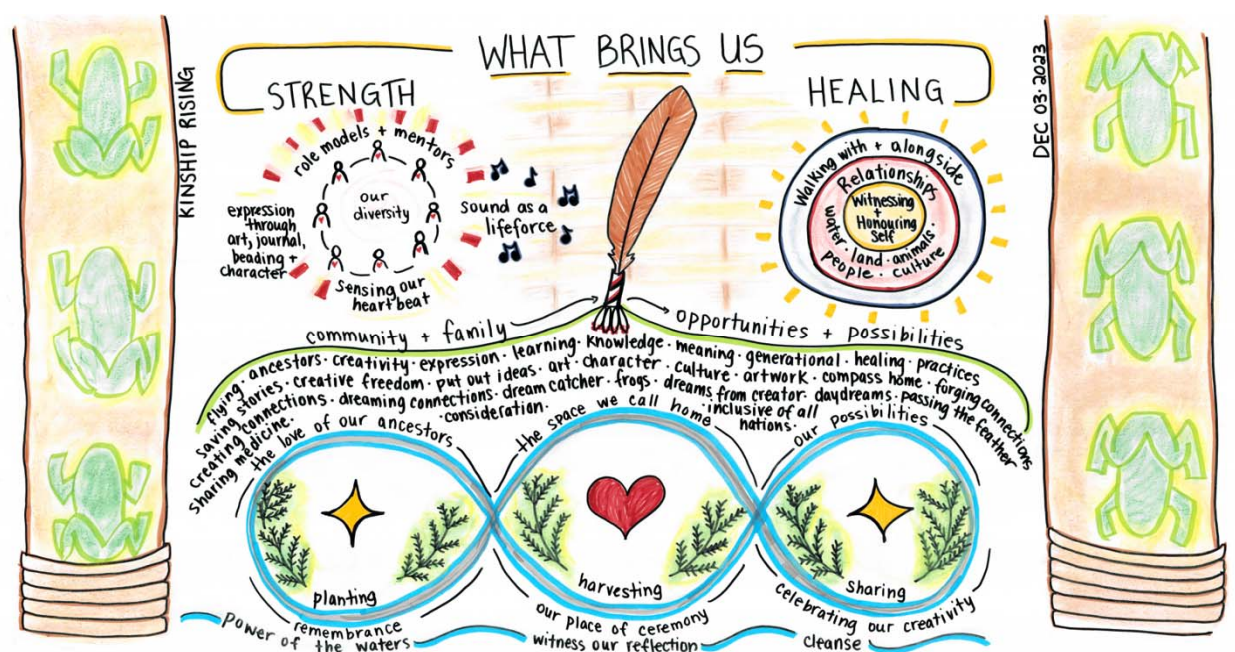 WHAT BRINGS US
STRENGTH
HEALING
KINSHIP RISING
DEC 03. 2023
role models + mentors
our
diversity
expression
through
art, journal,
beading +
character
sensing our
heart beat
sound as a
lifeforce
Walking with + alongside
Relationships
Witnessing
+
Honouring
Self
water · land · animals ·
people · culture
community + family
opportunities + possibilities
flying · ancestors · creativity · expression · learning · knowledge · meaning · generational · healing · practices
saving stories · creative freedom · put out ideas · art · character · culture · artwork · compass home · forging connections
creating connections · dreaming connections · dream catcher · frogs · dreams from creator · daydreams · passing the feather
sharing medicine ·
consideration ·
inclusive of all
nations ·
the love of our ancestors
the space we call home
our possibilities
planting
harvesting
Sharing
remembrance
our place of ceremony
celebrating our creativity
power of the waters
witness our reflection
cleanse